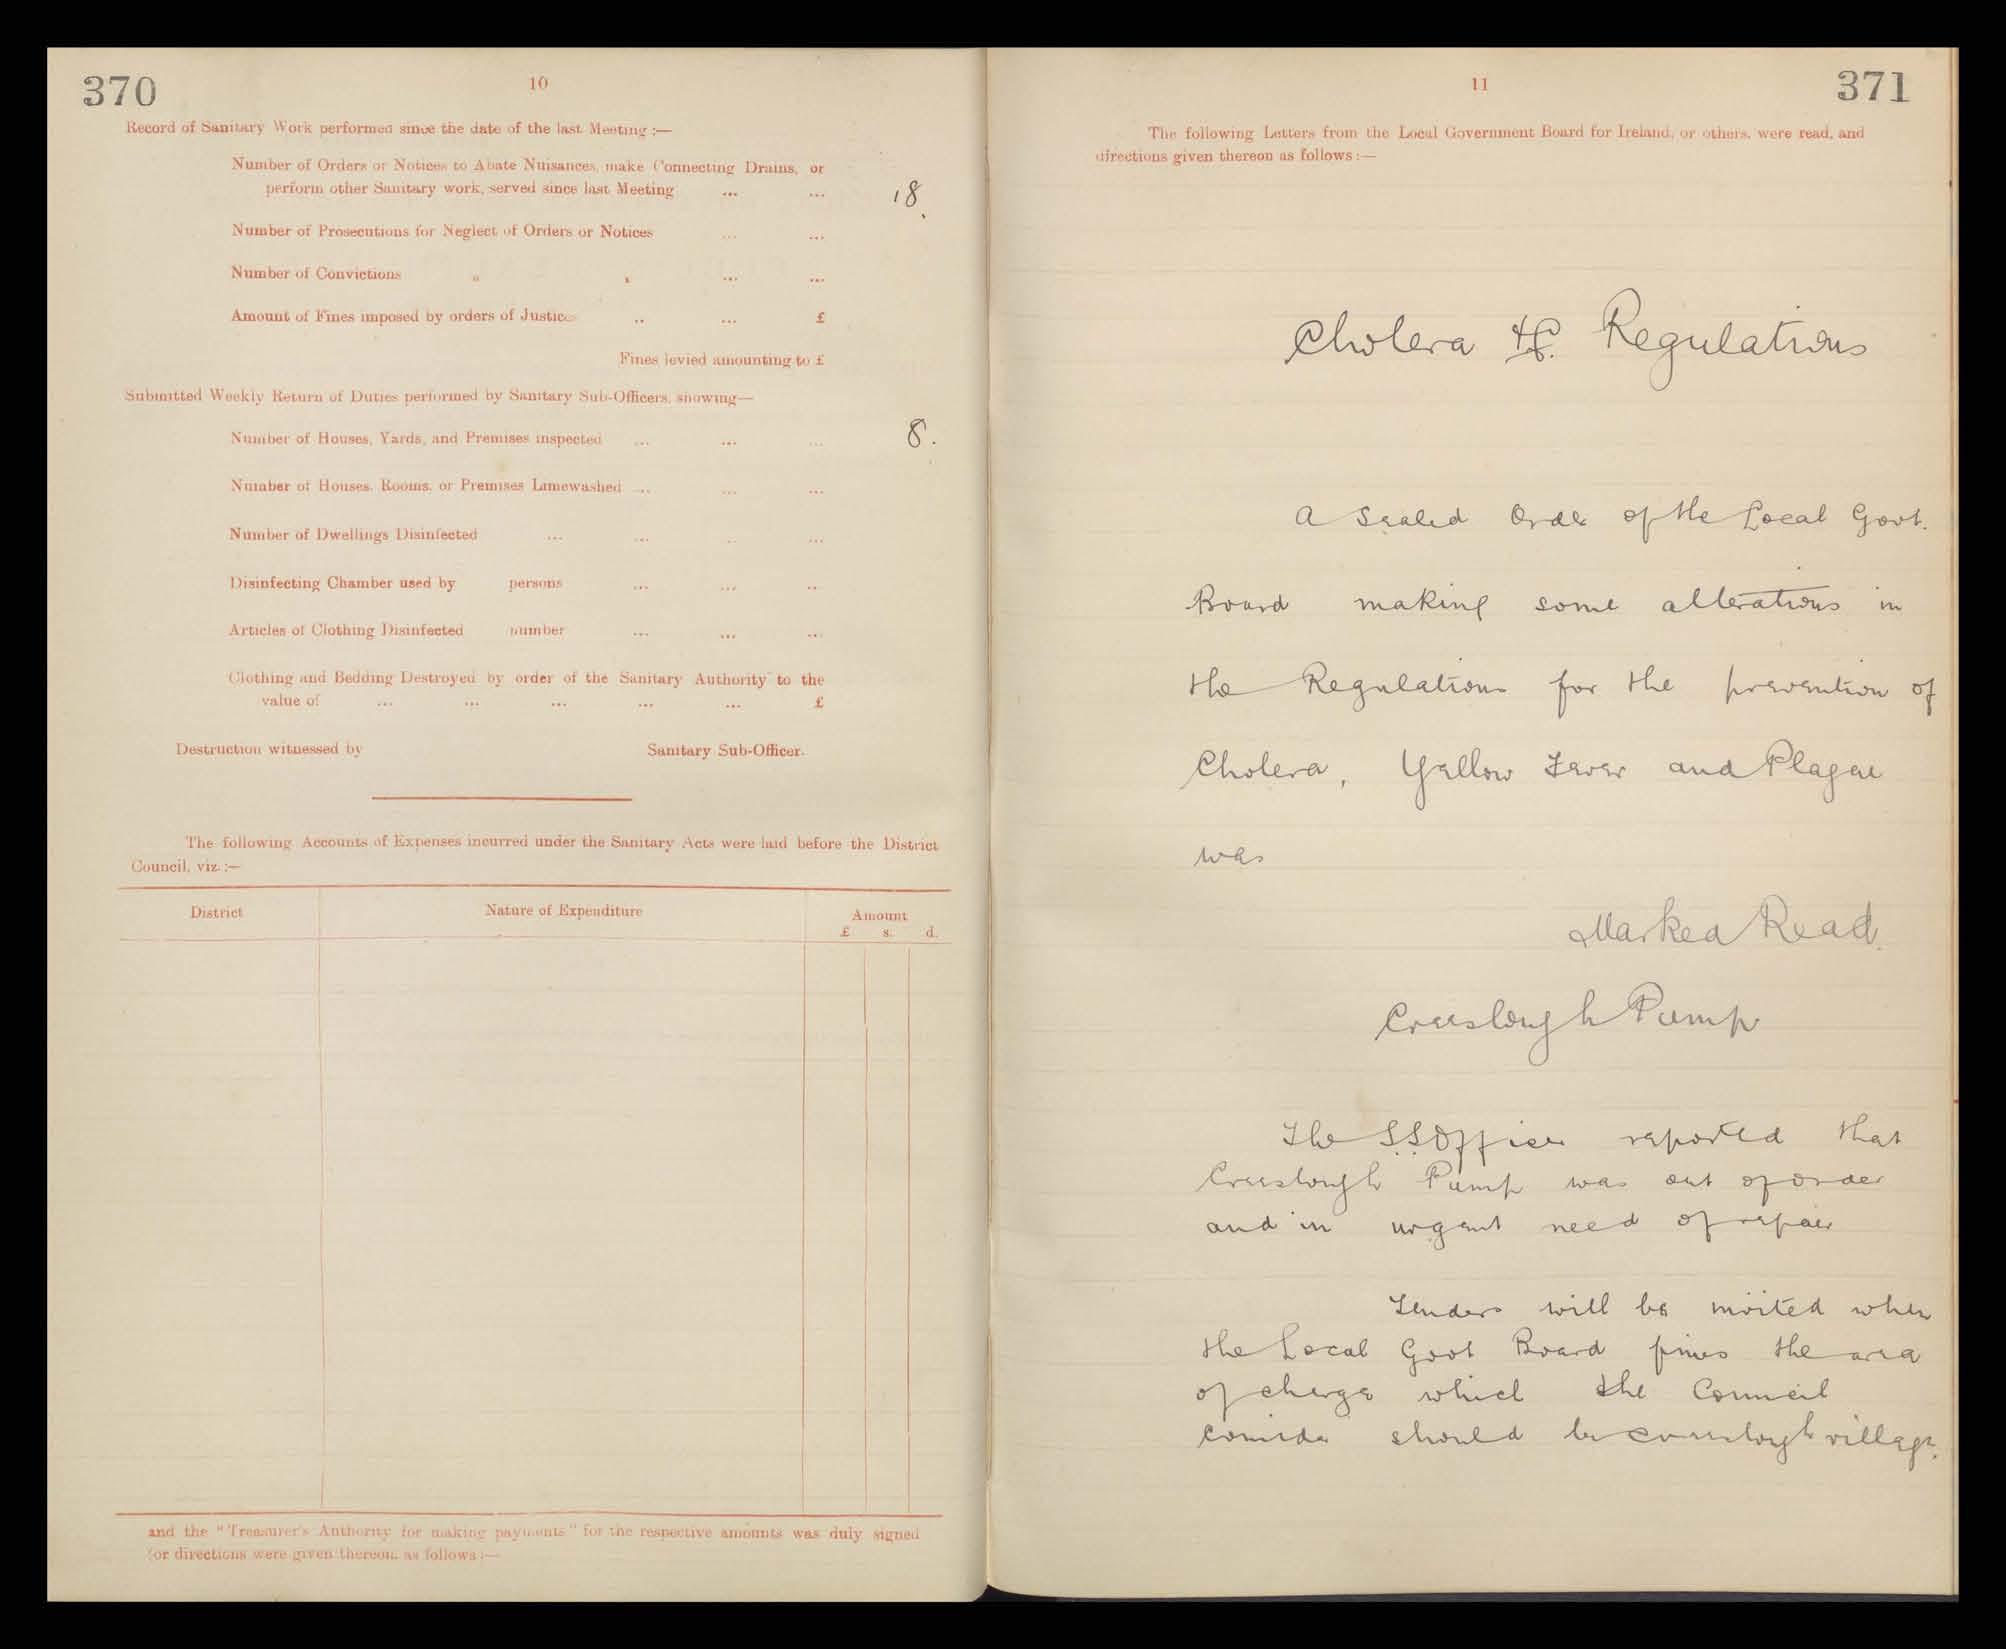 370
10
Record of Sanitary Work performed since the date of the last Meeting :—
Number of Orders or Notices to Abate Nuisances, make Connecting Drains, or
perform other Sanitary work, served since last Meeting ... ... 18.
Number of Prosecutions for Neglect of Orders or Notices ... ...
Number of Convictions " " ... ...
Amount of Fines imposed by orders of Justices .. ... £
Fines levied amounting to £
Submitted Weekly Return of Duties performed by Sanitary Sub-Officers, showing—
Number of Houses, Yards, and Premises inspected ... ... ... 8.
Number of Houses, Rooms, or Premises Limewashed ... ... ...
Number of Dwellings Disinfected ... ... .. ...
Disinfecting Chamber used by persons ... ... ...
Articles of Clothing Disinfected number ... ... ...
Clothing and Bedding Destroyed by order of the Sanitary Authority to the
value of ... ... ... ... ... £
Destruction witnessed by Sanitary Sub-Officer.
The following Accounts of Expenses incurred under the Sanitary Acts were laid before the District
Council, viz. :—
District Nature of Expenditure Amount
£ s. d.
and the "Treasurer's Authority for making payments" for the respective amounts was duly signed
(or directions were given thereon, as follows :—
11
371
The following Letters from the Local Government Board for Ireland, or others, were read, and
directions given thereon as follows :—
Cholera &c. Regulations
A Sealed Order of the Local Govt.
Board making some alterations in
the Regulations for the prevention of
Cholera, Yellow Fever and Plague
was
Marked Read.
Creeslough Pump
The S.S. Officer reported that
Creeslough Pump was out of order
and in urgent need of repair
Tenders will be invited when
the Local Govt Board the area
of charge which the Council
should be Creeslough village.